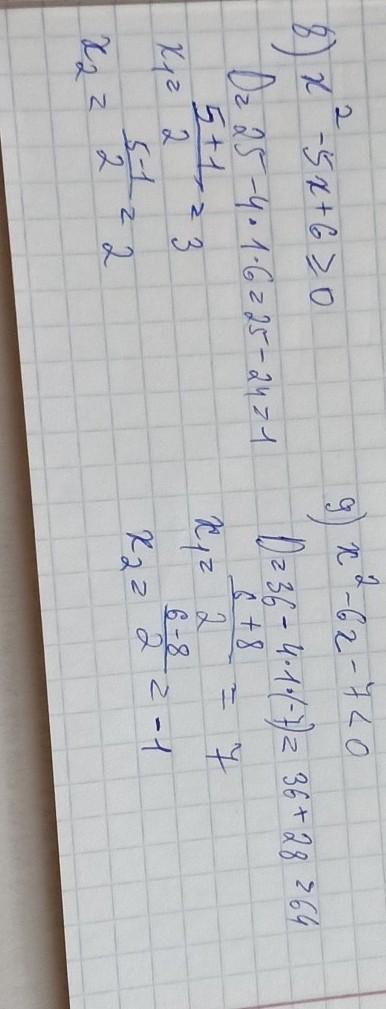 8) x² - 5x + 6 ≥ 0
D = 25 - 4 · 1 · 6 = 25 - 24 = 1
x₁ = (5 + 1)/2 = 3
x₂ = (5 - 1)/2 = 2
9) x² - 6x - 7 < 0
D = 36 - 4 · 1 · (-7) = 36 + 28 = 64
x₁ = (6 + 8)/2 = 7
x₂ = (6 - 8)/2 = -1